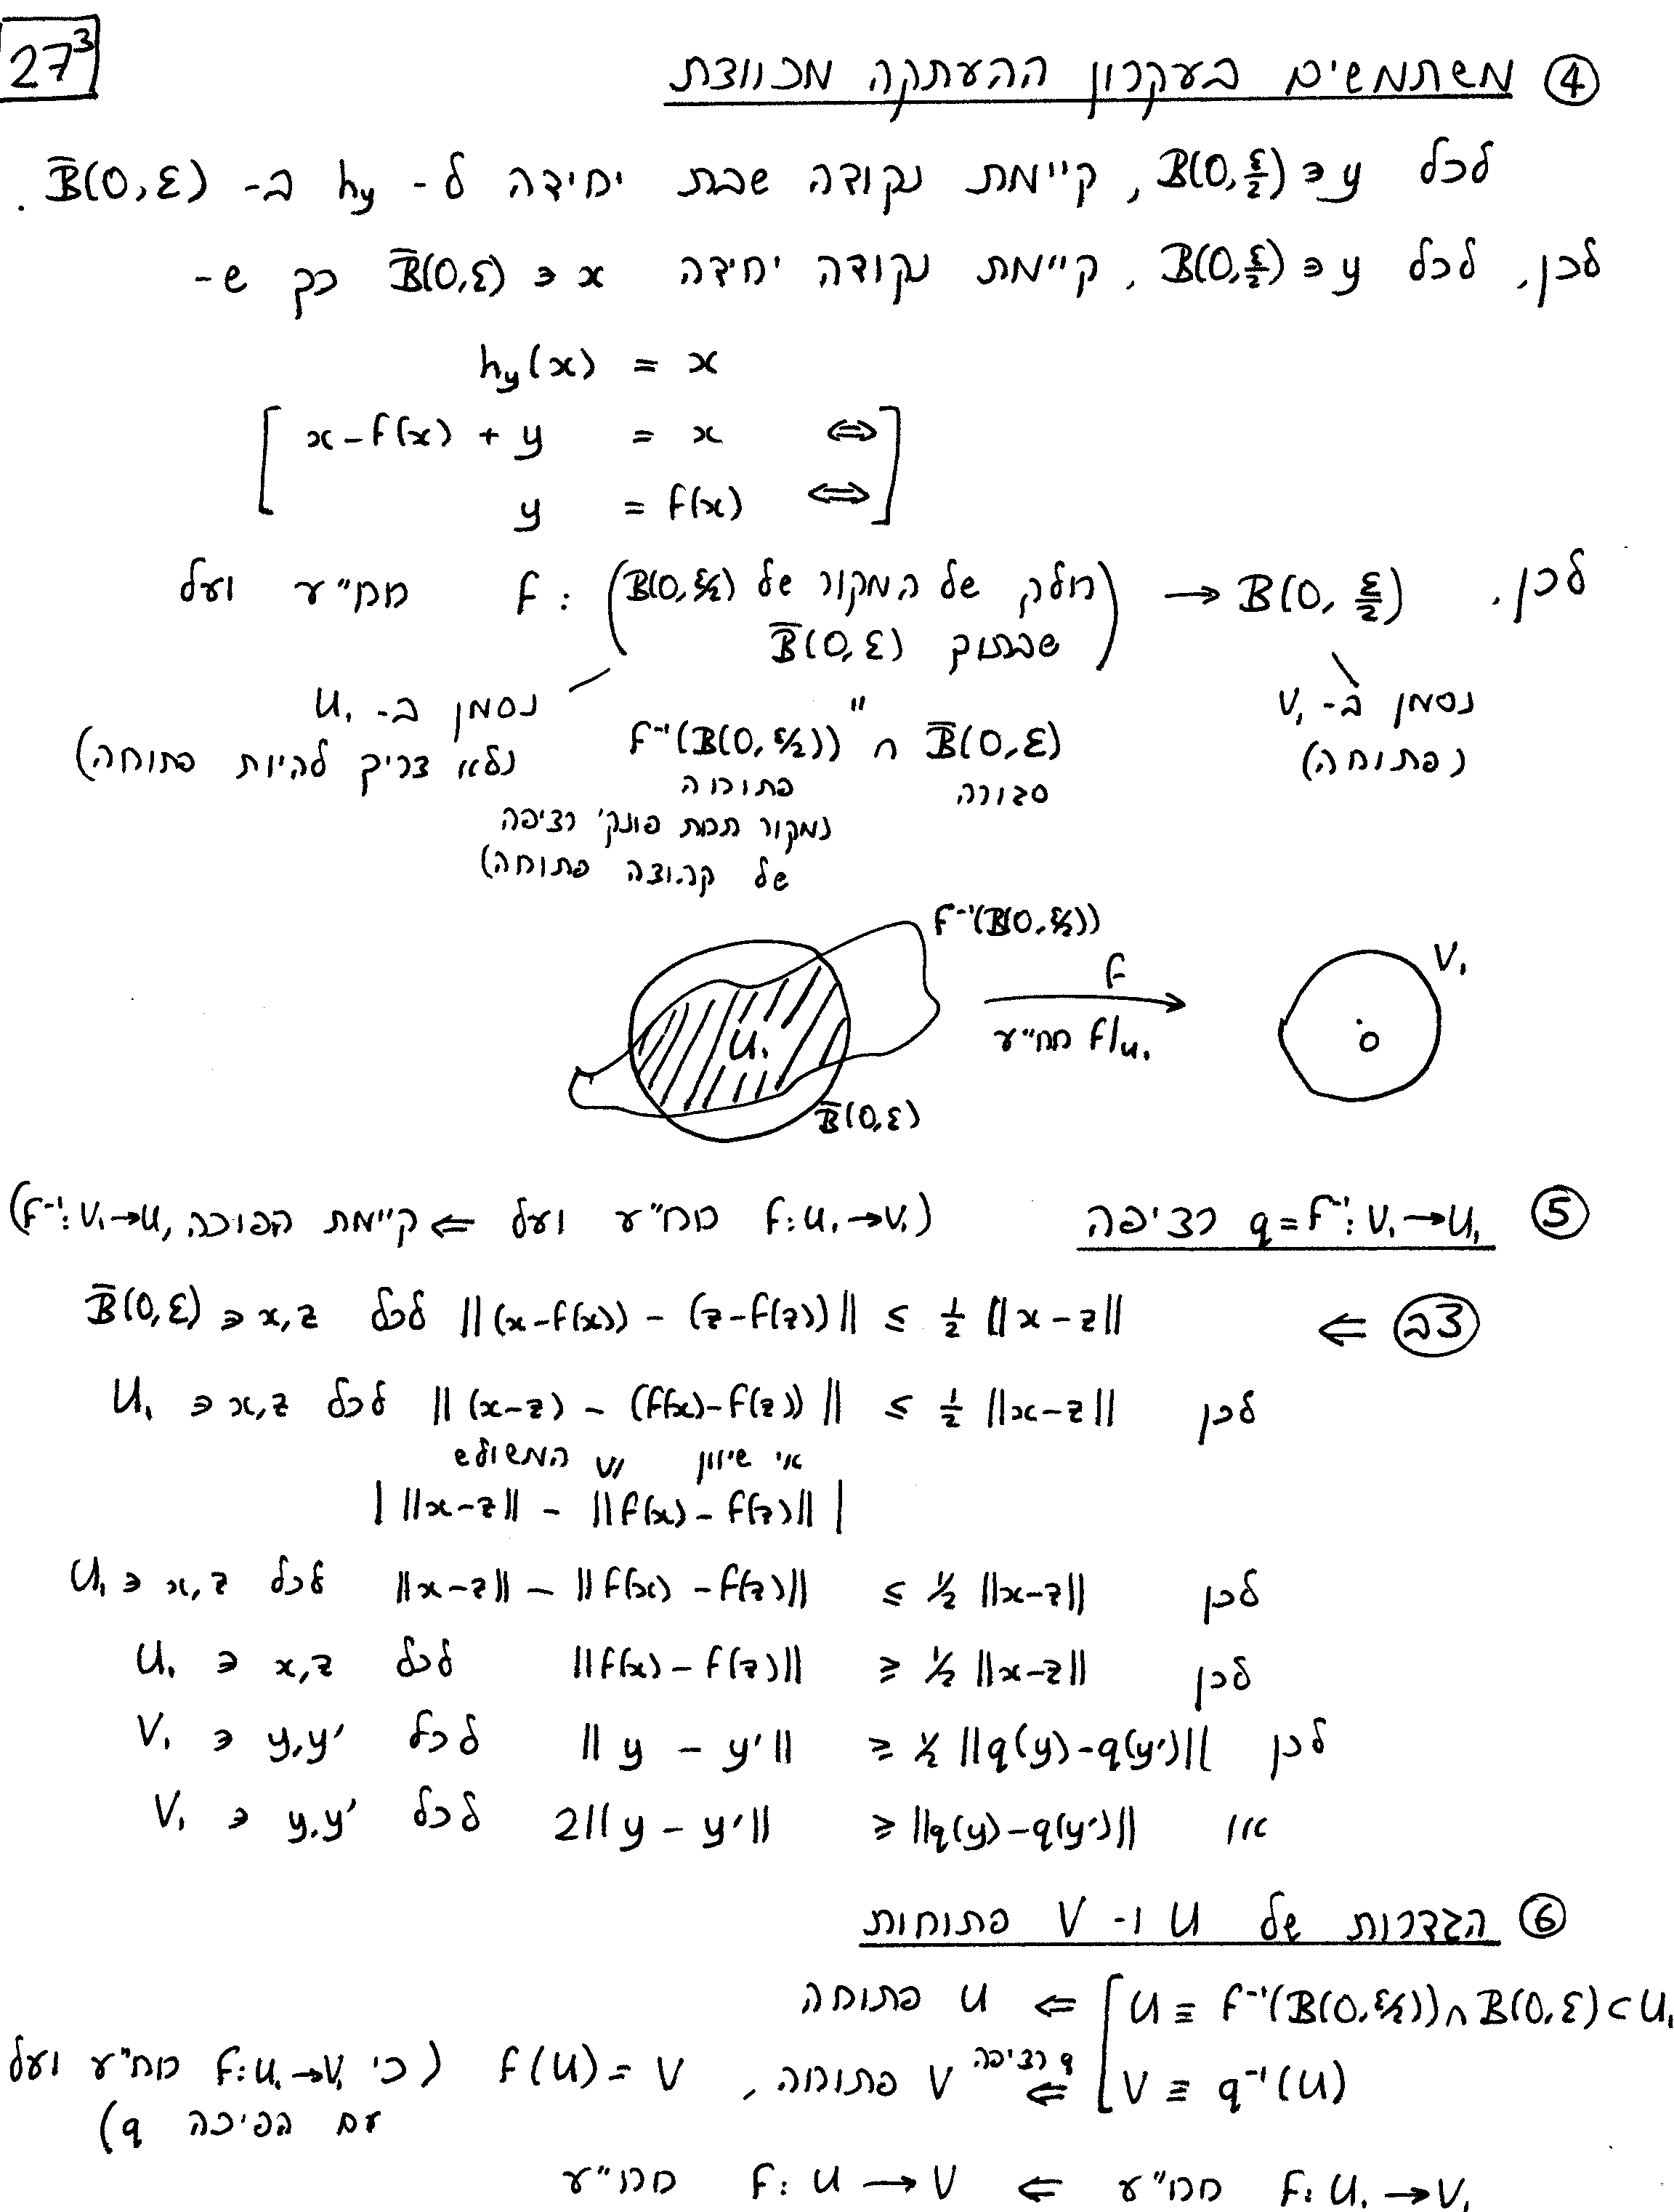 27³
④ משתמשים בעקרון ההעתקה מכווצת
לכל B(0,ε/2) ∋ y, קיימת נקודה שבת יחידה ל- h_y ב- B̄(0,ε).
לכן, לכל B(0,ε/2) ∋ y, קיימת נקודה יחידה B̄(0,ε) ∋ x כך ש-
h_y(x) = x
[ x-f(x) + y = x ⇔
y = f(x) ⇔ ]
לכן, f : (חלק של המקור של B(0,ε/2) שבתוך B̄(0,ε)) → B(0, ε/2) חח"ע ועל
נסמן ב- V₁ (פתוחה)
נסמן ב- U₁ (לא צריך להיות פתוחה)
"
f⁻¹(B(0,ε/2)) ∩ B̄(0,ε)
פתוחה סגורה
(מקור תחת פונק' רציפה
של קבוצה פתוחה)
f⁻¹(B(0,ε/2))
f
V₁
U₁
f|U₁ חח"ע
0
B̄(0,ε)
⑤ q=f⁻¹: V₁→U₁ רציפה (f: U₁→V₁ חח"ע ועל ⇐ קיימת הפוכה, f⁻¹: V₁→U₁)
3ב ⇐ ||(x-f(x)) - (z-f(z))|| ≤ ½ ||x-z|| לכל B̄(0,ε) ∋ x,z
לכן ||(x-z) - (f(x)-f(z))|| ≤ ½ ||x-z|| לכל U₁ ∋ x,z
אי שיוון ∨ı המשולש
| ||x-z|| - ||f(x)-f(z)|| |
לכן ||x-z|| - ||f(x)-f(z)|| ≤ ½ ||x-z|| לכל U₁ ∋ x,z
לכן ||f(x)-f(z)|| ≥ ½ ||x-z|| לכל U₁ ∋ x,z
לכן ||y - y'|| ≥ ½ ||q(y)-q(y')|| לכל V₁ ∋ y,y'
או 2||y - y'|| ≥ ||q(y)-q(y')|| לכל V₁ ∋ y,y'
⑥ הגדרות של U ו- V פתוחות
[ U ≡ f⁻¹(B(0,ε/2)) ∩ B(0,ε) ⊂ U₁ ⇐ U פתוחה
V ≡ q⁻¹(U) ⇐ q רציפה V פתוחה, f(U) = V (כי f: U₁→V₁ חח"ע ועל
עם הפיכה q)
f: U₁ → V₁ חח"ע ⇐ f: U → V חח"ע